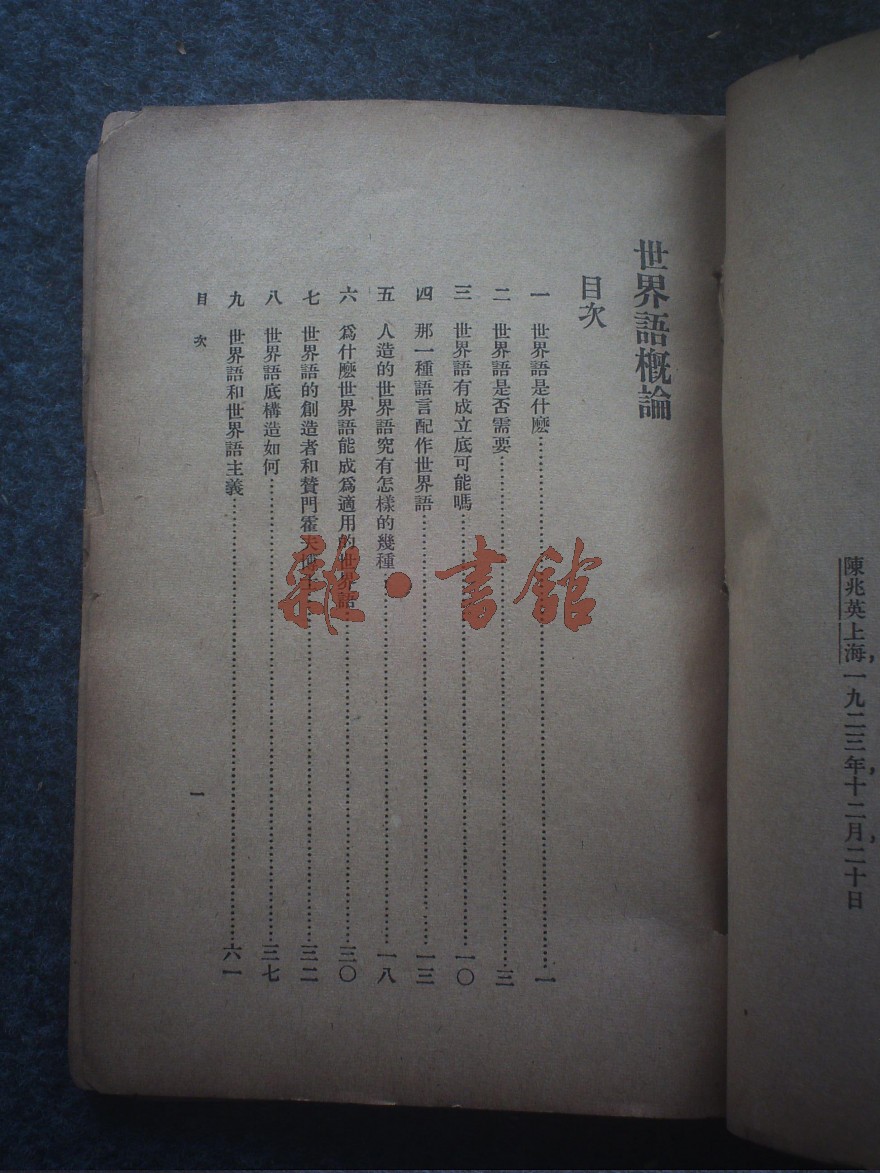 陳兆英上海，一九二三年，十二月，二十日
世界語概論
目次
一 世界語是什麽……一
二 世界語是否需要……三
三 世界語有成立底可能嗎……一〇
四 那一種語言配作世界語……一三
五 人造的世界語究有怎樣的幾種……一八
六 爲什麽世界語能成爲適用的世界語……三〇
七 世界語的創造者和贊門霍夫博……三二
八 世界語底構造如何……三七
九 世界語和世界語主義……六一
目次
一
雜·書館